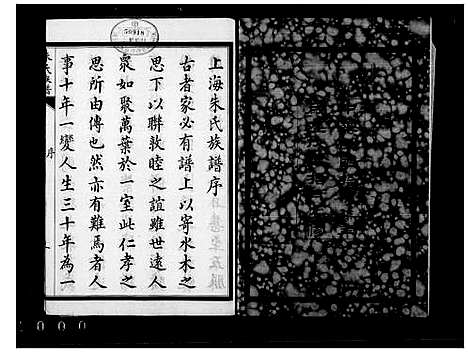 上海朱氏族譜序
古者家必有譜上以寄水木之
思下以聯敦睦之誼雖世遠人
衆如聚萬葉於一室此仁孝之
思所由傳也然亦有難焉者人
事十年一變人生三十年為一
朱氏族譜
序
50918
000